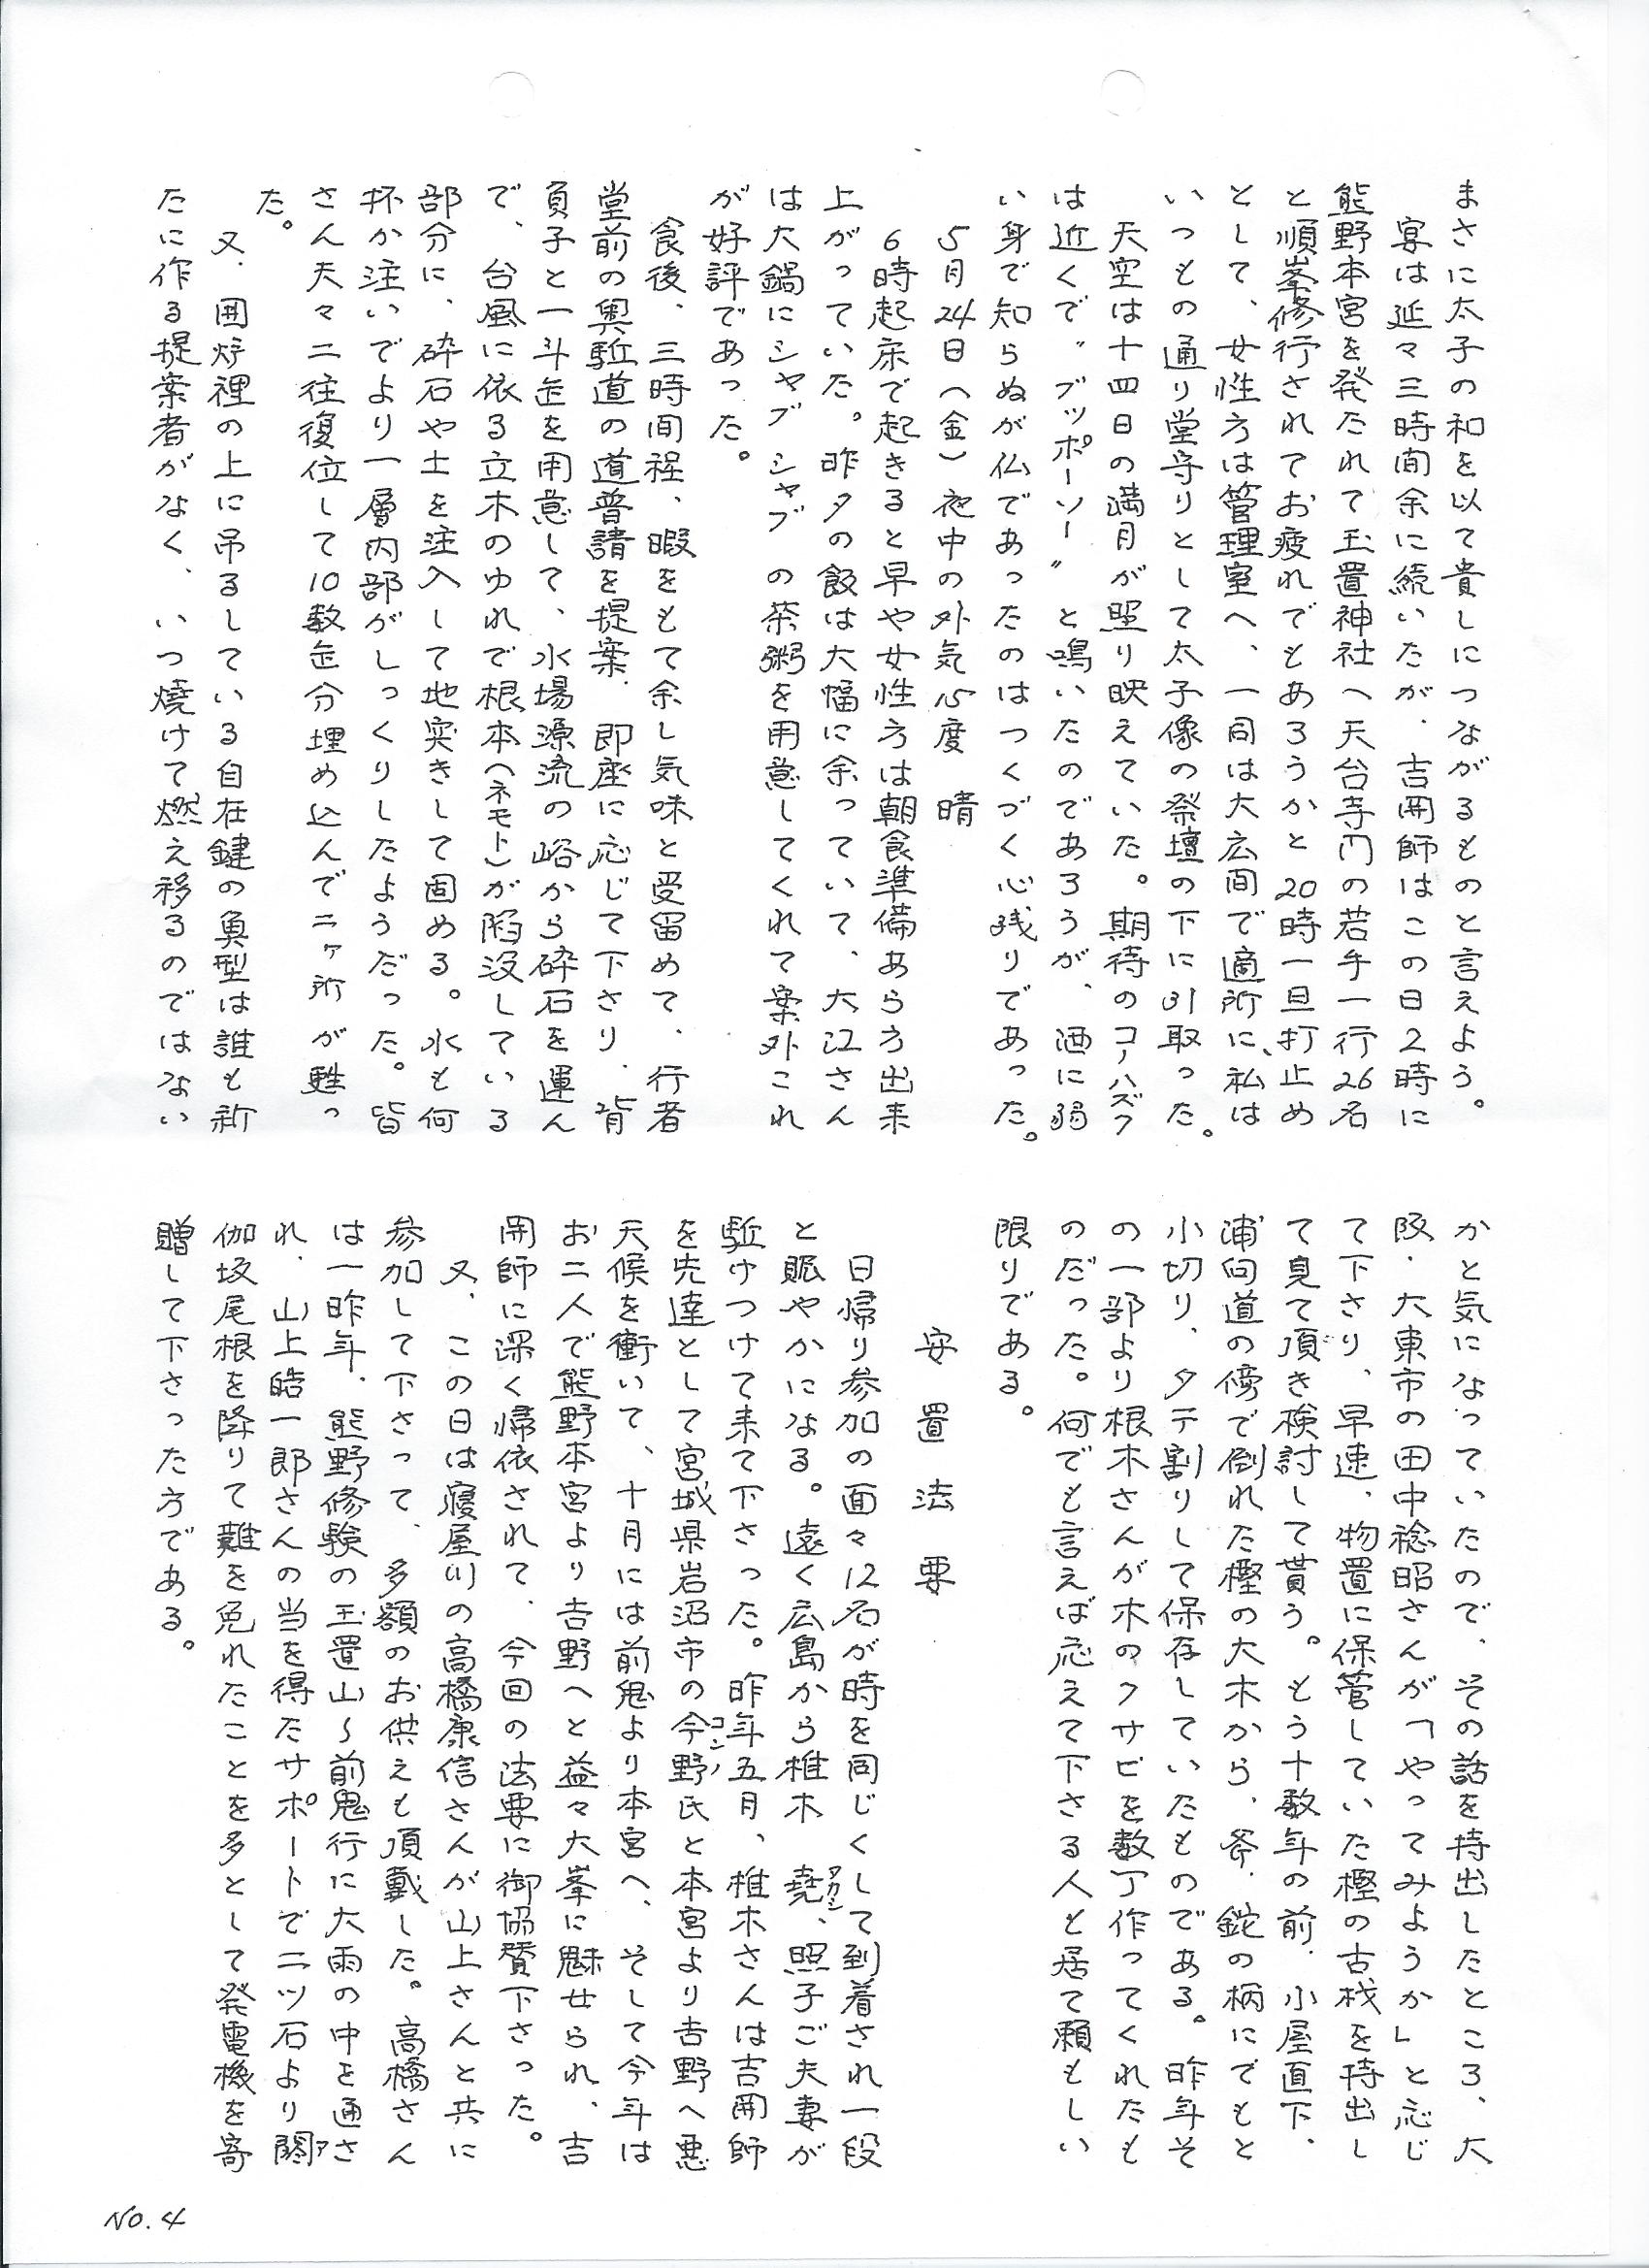 まさに太子の和を以て貴しにつながるものと言えよう。
宴は延々三時間余に続いたが、吉開師はこの日2時に
熊野本宮を発たれて玉置神社へ天台寺門の若手一行26名
と順峯修行されてお疲れでもあろうかと20時一旦打止め
として、女性方は管理室へ、一同は大広間で適所に、私は
いつもの通り堂守りとして太子像の祭壇の下に引取った。
天空は十四日の満月が照り映えていた。期待のコノハズク
は近くで〝ブッポーソー〟と鳴いたのであろうが、酒に弱
い身で知らぬが仏であったのはつくづく心残りであった。
5月24日(金)夜中の外気15度 晴
6時起床で起きると早や女性方は朝食準備あらう方出来
上がっていた。昨夕の飯は大幅に余っていて、大江さん
は大鍋にシャブシャブの茶粥を用意してくれて案外これ
が好評であった。
食後、三時間程、暇をもて余し気味と受留めて、行者
堂前の奥駈道の道普請を提案、即座に応じて下さり、背
負子と一斗缶を用意して、水場源流の峪から砕石を運ん
で、台風に依る立木のゆれで根本(ネモト)が陥没している
部分に、砕石や土を注入して地突きして固める。水も何
杯か注いでより一層内部がしっくりしたようだった。皆
さん夫々二往復位して10数缶分埋め込んで二ヶ所が甦っ
た。
又、囲炉裡の上に吊るしている自在鍵の魚型は誰も新
たに作る提案者がなく、いつ焼けて燃え移るのではない
かと気になっていたので、その話を持出したところ、大
阪・大東市の田中稔昭さんが「やってみようか」と応じ
て下さり、早速、物置に保管していた樫の古材を持出し
て見て頂き検討して貰う。もう十数年の前、小屋直下、
浦向道の傍で倒れた樫の大木から、斧、鉈の柄にでもと
小切り、タテ割りして保存していたものである。昨年そ
の一部より根木さんが木のクサビを数丁作ってくれたも
のだった。何でも言えば応えて下さる人と居て頼もしい
限りである。
安置法要
日帰り参加の面々12名が時を同じくして到着され一段
と賑やかになる。遠く広島から椎木 堯タカシ、照子ご夫妻が
駈けつけて来て下さった。昨年五月、椎木さんは吉開師
を先達として宮城県岩沼市の今野コンノ氏と本宮より吉野へ悪
天候を衝いて、十月には前鬼より本宮へ、そして今年は
お二人で熊野本宮より吉野へと益々大峯に魅せられ、吉
開師に深く帰依されて、今回の法要に御協賛下さった。
又、この日は寝屋川の高橋康信さんが山上さんと共に
参加して下さって、多額のお供えも頂戴した。高橋さん
は一昨年、熊野修験の玉置山〜前鬼行に大雨の中を通さ
れ、山上皓一郎さんの当を得たサポートで二ツ石より閼ア
伽坂尾根を降りて難を免れたことを多として発電機を寄
贈して下さった方である。
No.4